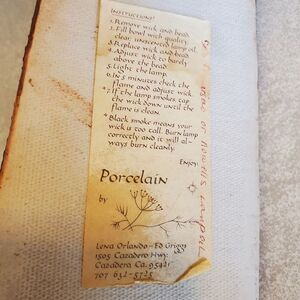 INSTRUCTIONS!
1. Remove wick and bead.
2. Fill bowl with quality clear, unscented lamp oil.
3. Replace wick and bead.
4. Adjust wick to barely above the bead.
5. Light the lamp.
6. In 5 minutes check the flame and adjust wick.
* 7. If the lamp smokes, tap the wick down until the flame is clean.
* Black smoke means your wick is too tall. Burn lamp correctly and it will always burn cleanly.
Enjoy!
Porcelain
by
Lena Orlando - Ed Griggs
1505 Cazadero Hwy.
Cazadero Ca. 95421
707 632-5723
or